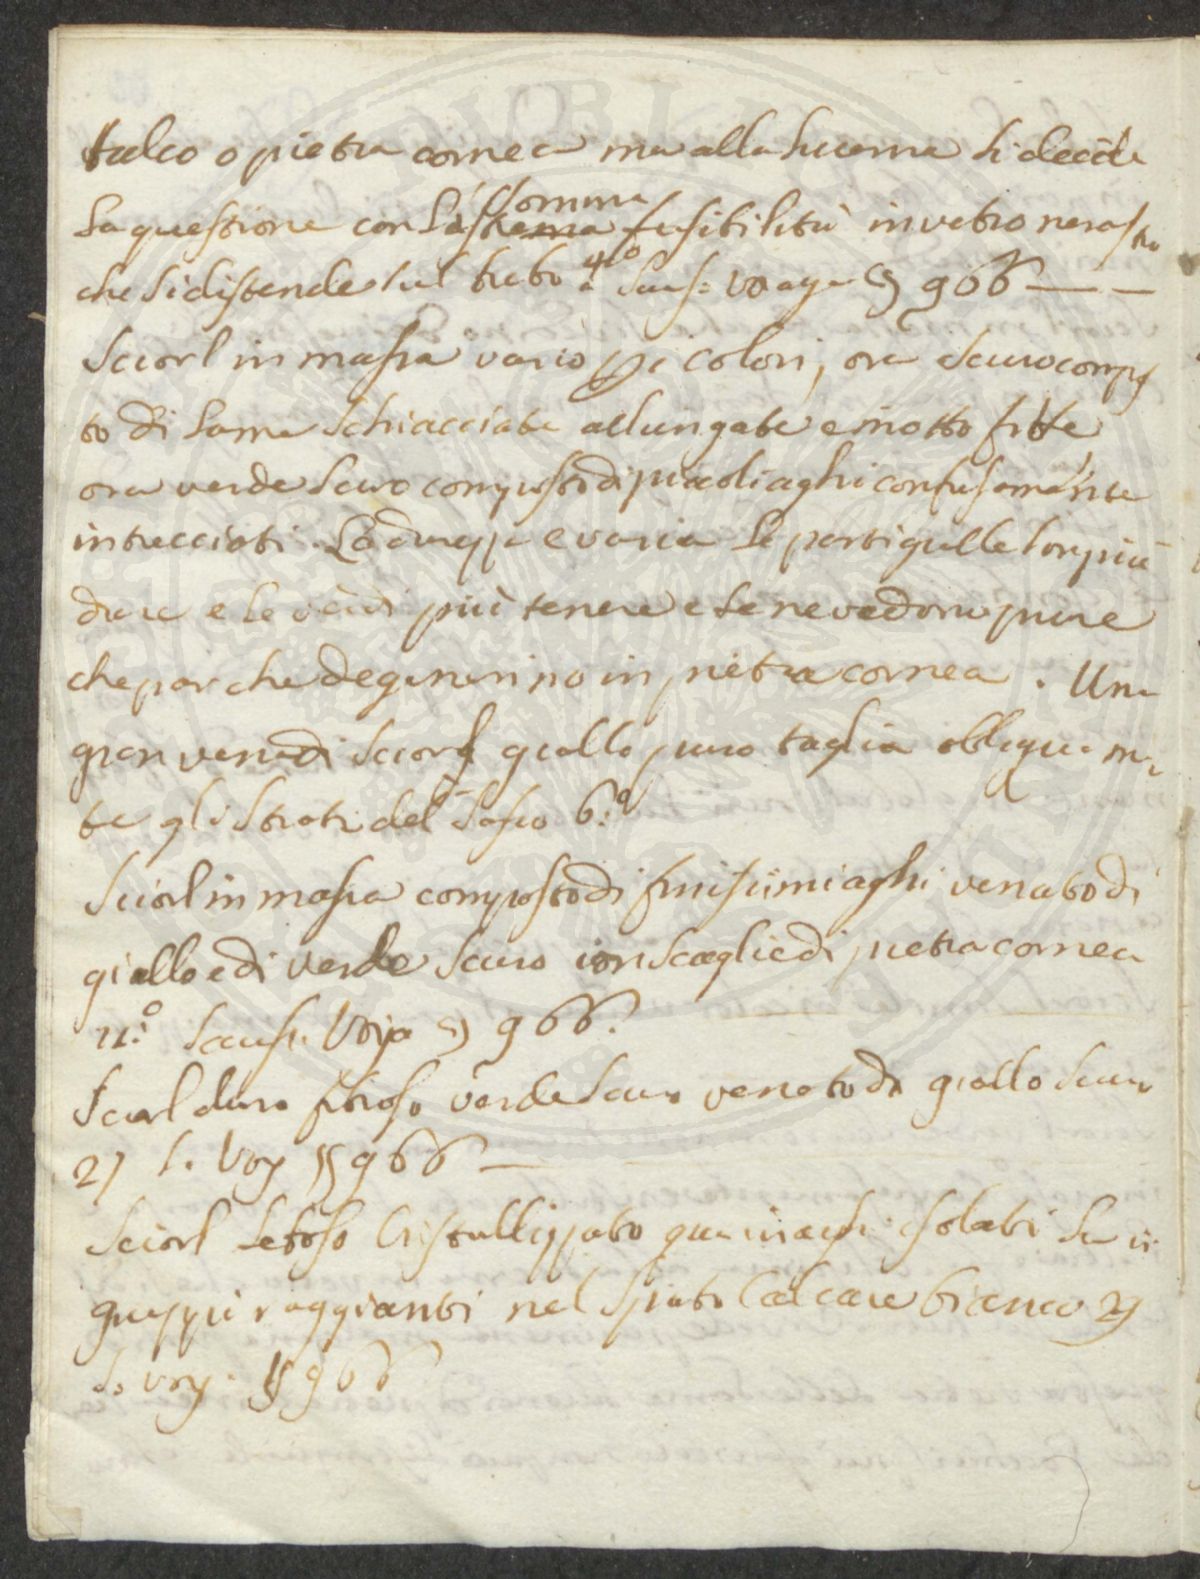 talco o pietra cornea ma alla lucerna si decide
la questione con la somma fusibilità in vetro nerastro
che si distende sul tubo 4.º Saus: voag. § 966 — —
Sciorl in massa vario pei colori, ora scuro compo
to di lame schiacciate allungate e molto fitte
ora verde scuro composto di piccoli aghi confusamente
intrecciati. La durezza e varia le parti gialle son più
dure e le verdi più tenere e se ne vedono pure
che par che degenerino in pietra cornea. Una
gran vena di sciorl giallo puro taglia obliquamen
te gli strati del sasso 6.º
Sciorl in massa composto di finissimi aghi venato di
giallo e di verde scuro con scaglie di pietra cornea
11.º Saus. Voja § 966.
Sciorl duro fibroso verde scuro venato di giallo scuro
27 S. Voy § 966 —
Sciorl setoso cristallizzato qua in aghi isolati la in
gruppi raggianti nel spato calcare bianco 29
S. voy. § 966